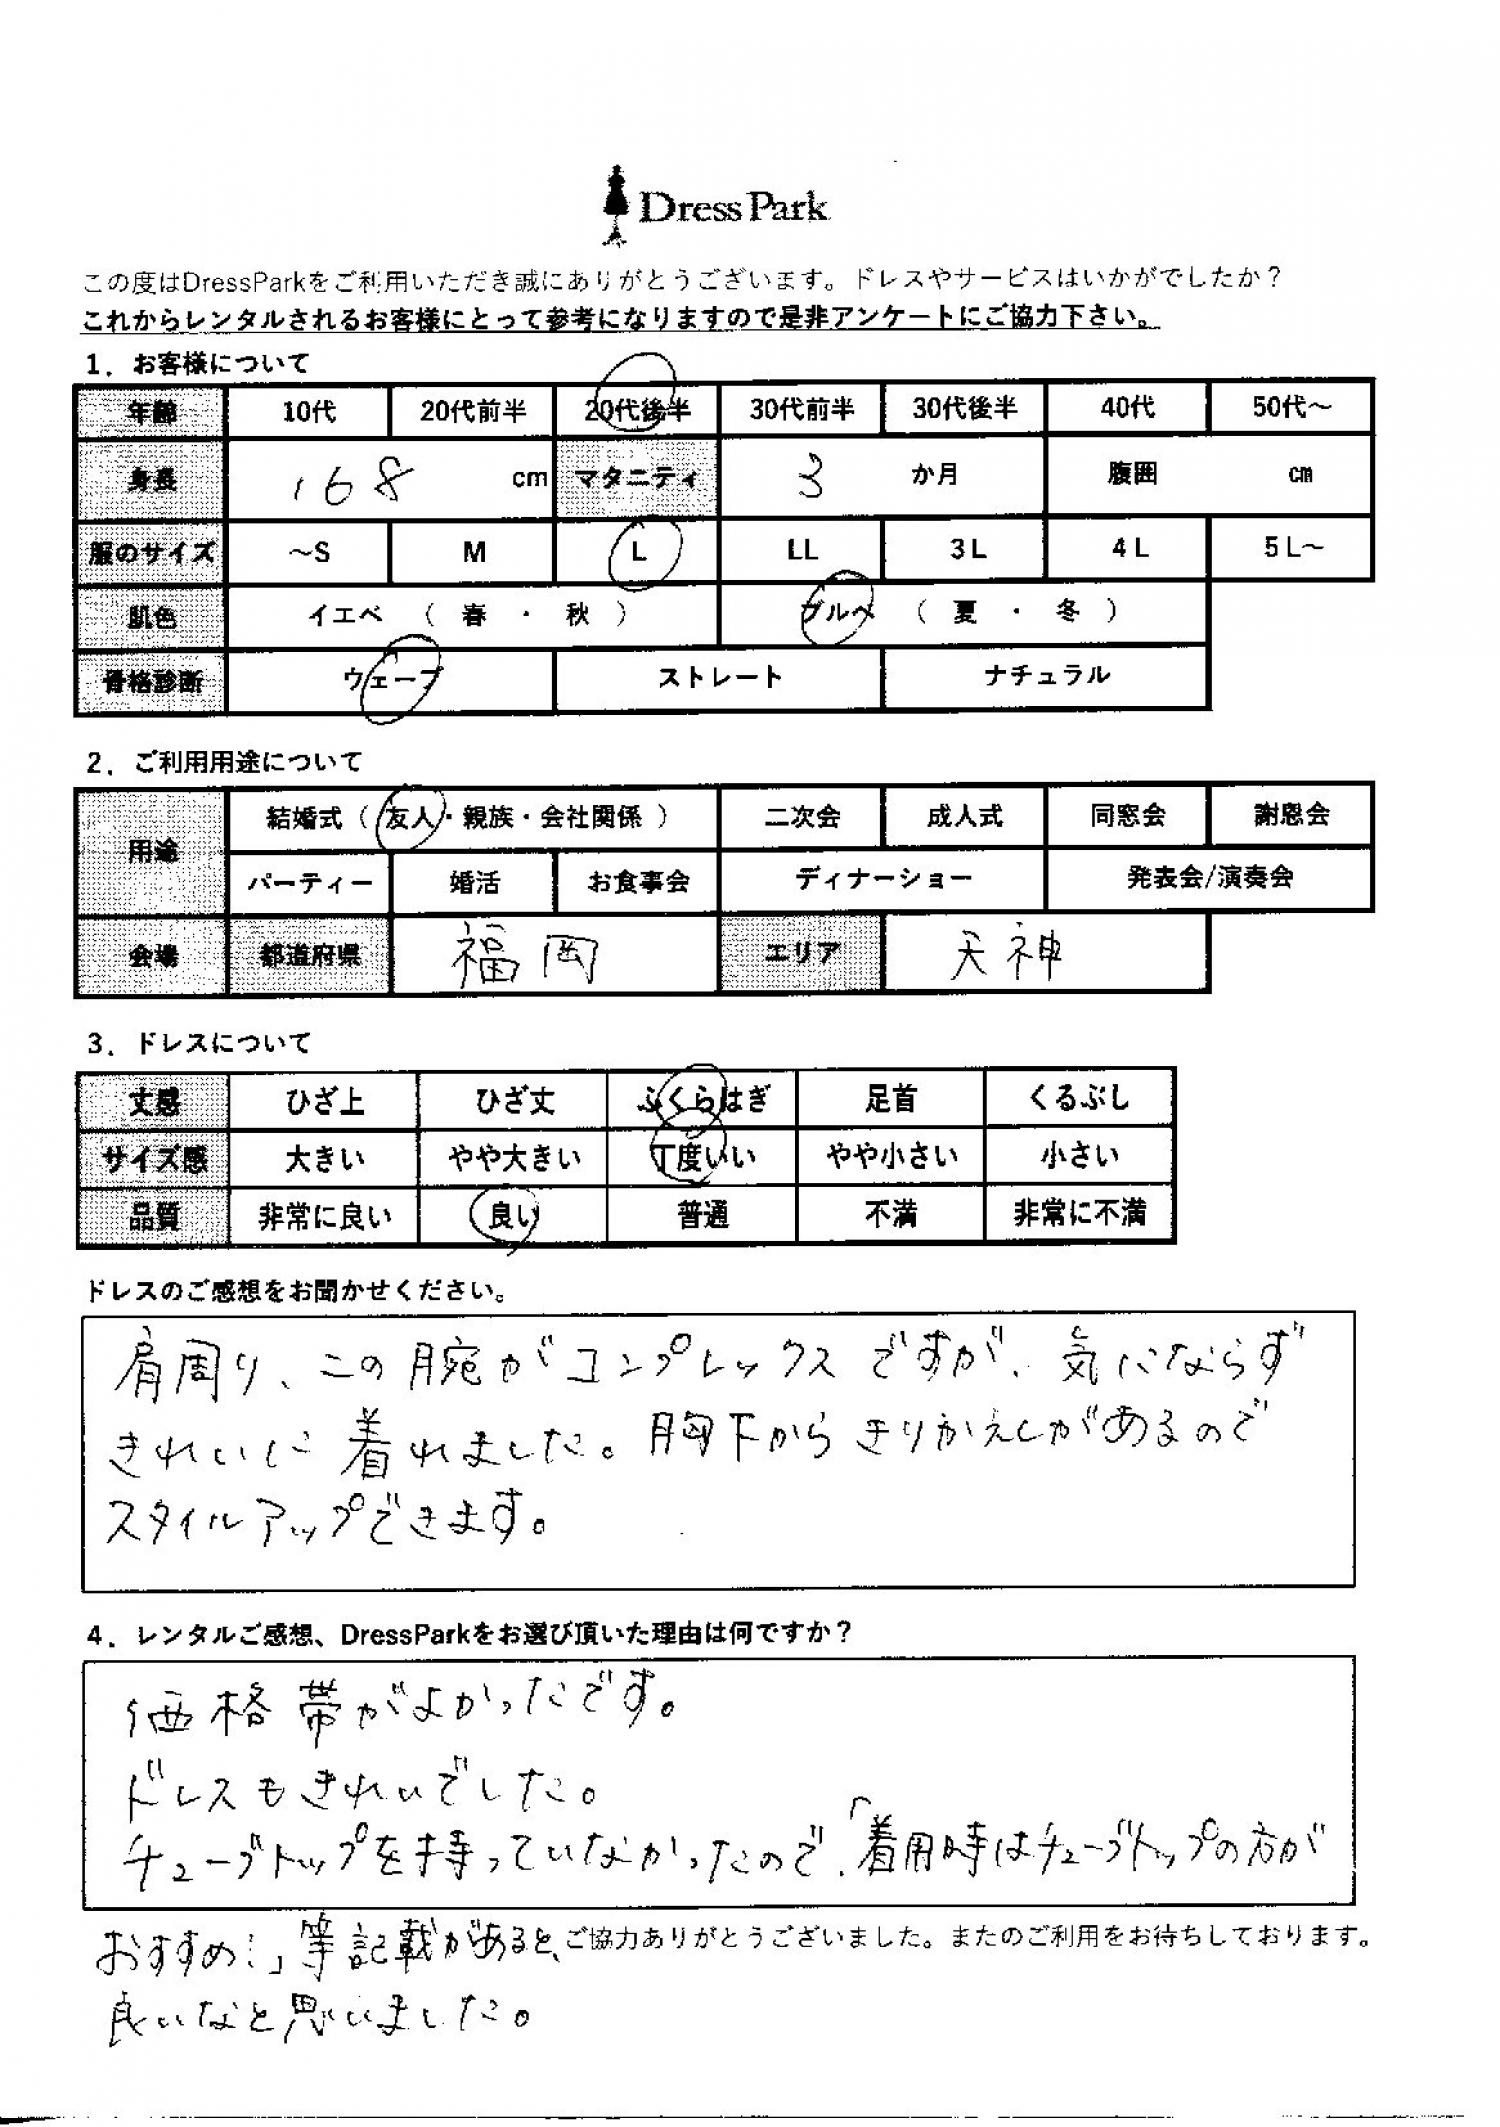 DressPark
この度はDressParkをご利用いただき誠にありがとうございます。ドレスやサービスはいかがでしたか？
これからレンタルされるお客様にとって参考になりますので是非アンケートにご協力下さい。
1．お客様について
年齢 10代 20代前半 20代後半 30代前半 30代後半 40代 50代～
身長 168 cm マタニティ 3 か月 腹囲 cm
服のサイズ ～S M L LL 3L 4L 5L～
肌色 イエベ （ 春 ・ 秋 ） ブルベ （ 夏 ・ 冬 ）
骨格診断 ウェーブ ストレート ナチュラル
2．ご利用用途について
用途 結婚式（ 友人・親族・会社関係 ） 二次会 成人式 同窓会 謝恩会
パーティー 婚活 お食事会 ディナーショー 発表会/演奏会
会場 都道府県 福岡 エリア 天神
3．ドレスについて
丈感 ひざ上 ひざ丈 ふくらはぎ 足首 くるぶし
サイズ感 大きい やや大きい 丁度いい やや小さい 小さい
品質 非常に良い 良い 普通 不満 非常に不満
ドレスのご感想をお聞かせください。
肩周り、この腕がコンプレックスですが、気にならず
きれいに着れました。胸下からきりかえしがあるので
スタイルアップできます。
4．レンタルご感想、DressParkをお選び頂いた理由は何ですか？
価格帯がよかったです。
ドレスもきれいでした。
チューブトップを持っていなかったので、「着用時はチューブトップの方が
おすすめ！」等記載があると、
ご協力ありがとうございました。またのご利用をお待ちしております。
良いなと思いました。